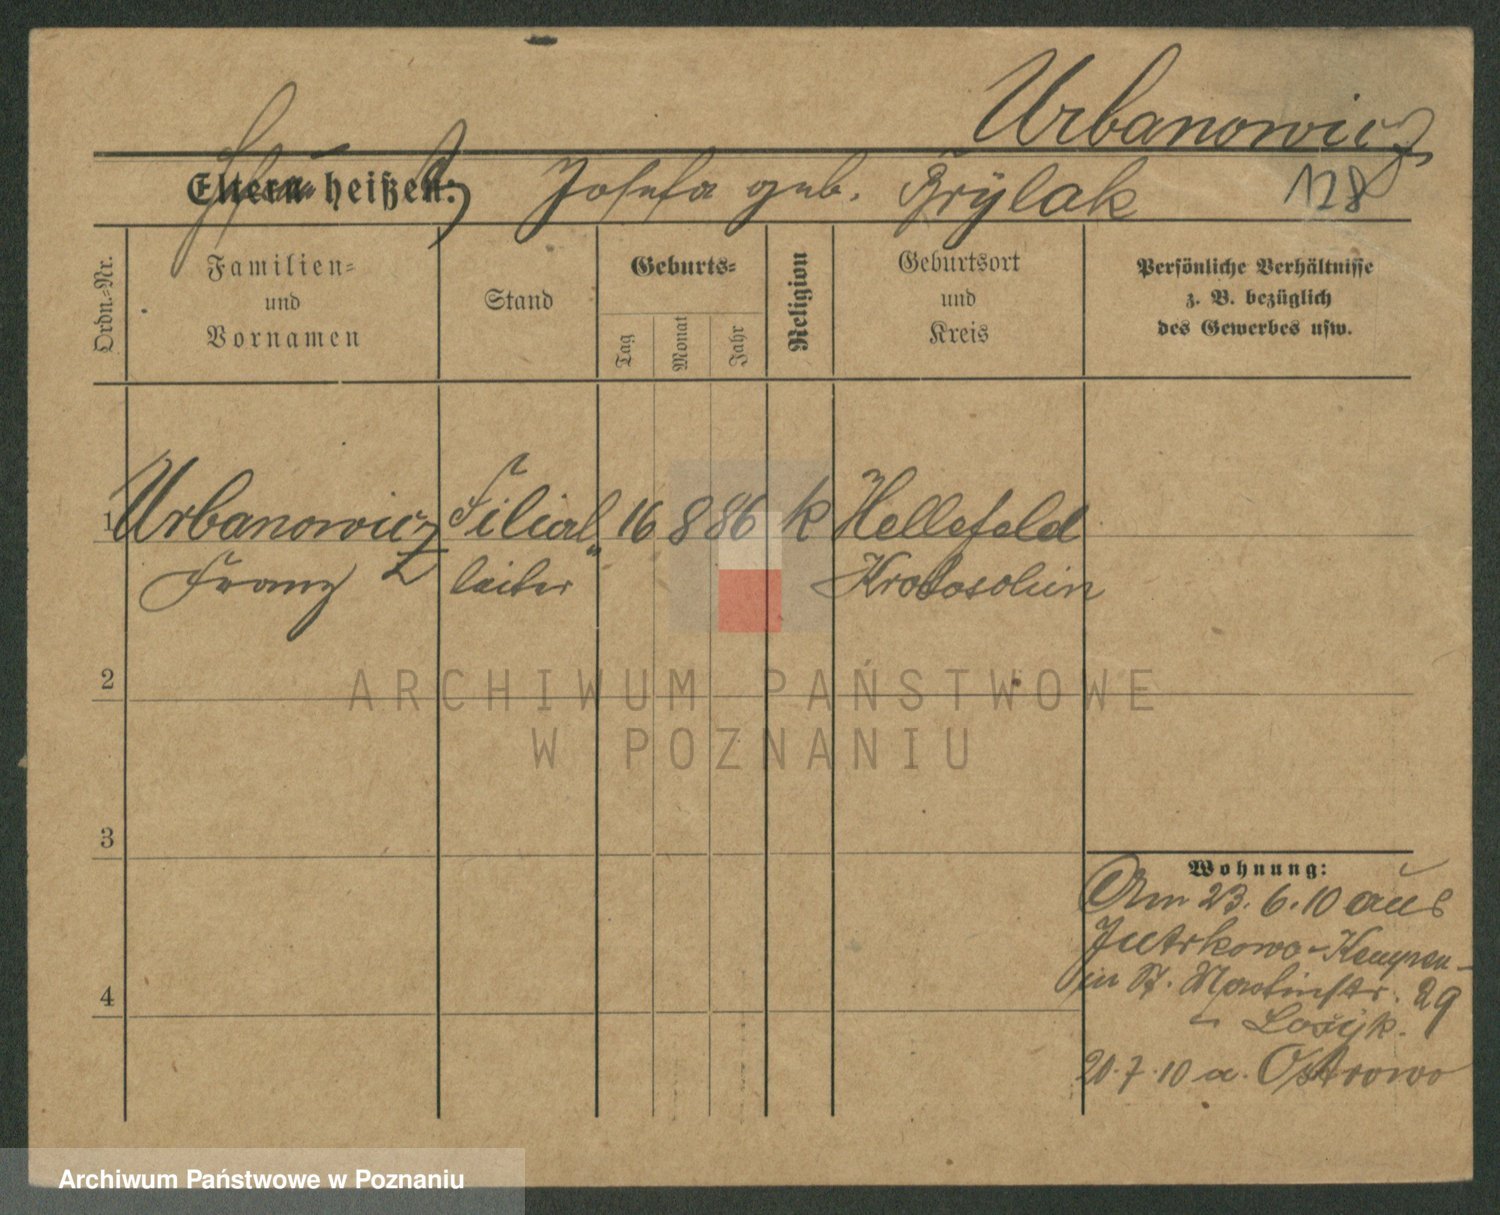 Urbanowicz
Eltern heißen: Josefa geb. Brÿlak
128
Ordn.-Nr.
Familien-
und
Vornamen
Stand
Geburts-
Tag
Monat
Jahr
Religion
Geburtsort
und
Kreis
Persönliche Verhältnisse
z. B. bezüglich
des Gewerbes usw.
1 Urbanowicz Filial- 16 8 86 k Hellefeld
Franz leiter Krotoschin
2
ARCHIWUM PAŃSTWOWE
W POZNANIU
3
Wohnung:
Am 23.6.10 aus
Jutrkowo-Kempen-
in St. Martinstr. 29
20.7.10 a. Ostrowo
4
Archiwum Państwowe w Poznaniu